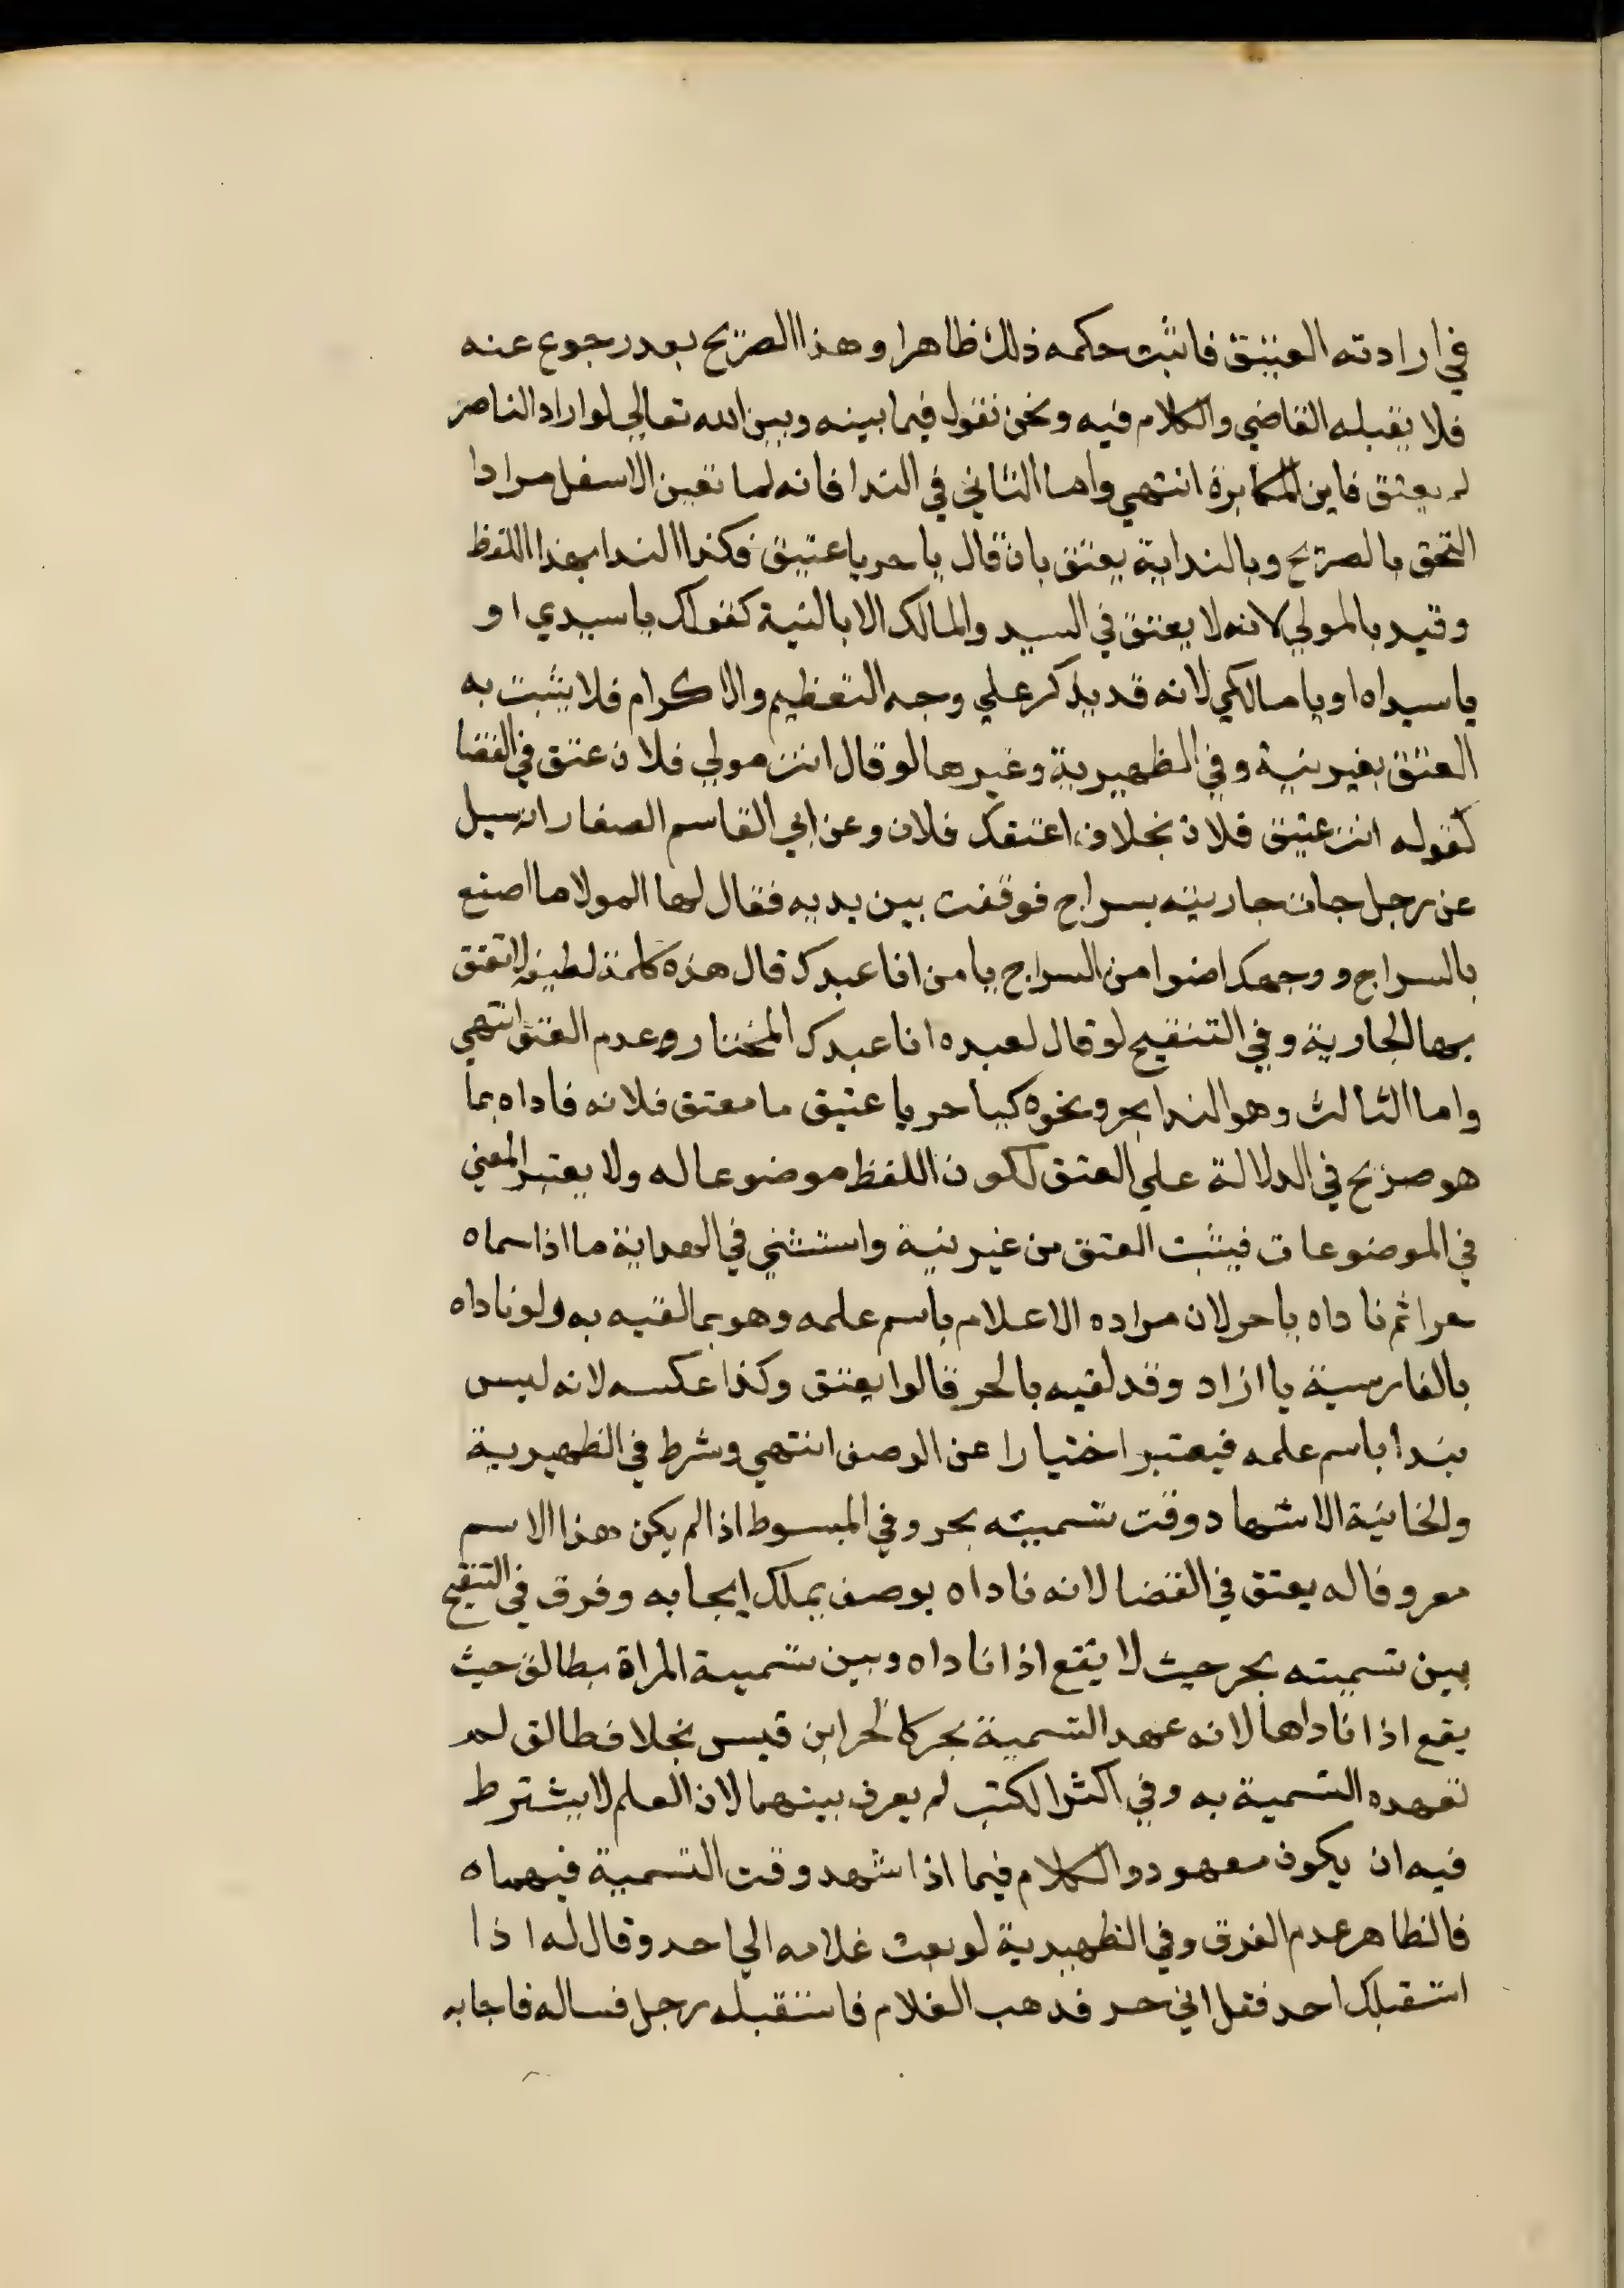 في ارادته العتق فاثبت حكمه ذلك ظاهرا وهذا الصريح بعد رجوع عنه
فلا يقبله القاضي والكلام فيه ونحن نقول فيما بينه وبين الله تعالي لو اراد الناصر
لم يعتق فاين المكابرة انتهي واما الثاني في الندا فانه لما تعين الاسفل مرادا
التحق بالصريح وبالندا به يعتق بان قال يا حر يا عتيق فكذا الندا بهذا اللفظ
وقيد بالمولي لانه لا يعتق في السيد والمالك الا بالنية كقولك يا سيدي او
يا سيداه او يا مالكي لانه قد يذكر علي وجه التعظيم والاكرام فلا يثبت به
العتق بغير نية وفي الظهيرية وغيرها لو قال انت مولي فلان عتق في القضا
كقوله انت عتيق فلان بخلاف اعتقك فلان وعن ابي القاسم الصفار انه سيل
عن رجل جات جاريته بسراج فوقفت بين يديه فقال لها المولا ما اصنع
بالسراج ووجهك اضوا من السراج يا من انا عبدك قال هذه كلمة لطيفة لا تعتق
بها الجارية وفي التنقيح لو قال لعبده انا عبدك المختار وعدم العتق انتهي
واما الثالث وهو الندا بحر ونحوه كيا حر يا عتيق ما معتق فلانه ناداه بما
هو صريح في الدلالة علي العتق لكون اللفظ موضوعا له ولا يعتبر المعني
في الموضوعات فيثبت العتق من غير نية واستثني في الهداية ما اذا سماه
حرا ثم ناداه يا حر لان مراده الاعلام باسم علمه وهو بما لقبه به ولو ناداه
بالفارسية يا ازاد وقد لقبه بالحر قالوا يعتق وكذا عكسه لانه ليس
بندا باسم علمه فيعتبر اختيارا عن الوصف انتهي وشرط في الظهيرية
والخانية الاشهاد وقت تسميته بحر وفي المبسوط اذا لم يكن هذا الاسم
معروفا له يعتق في القضا لانه ناداه بوصف يملك ايجابه وفرق في التنقيح
بين تسميته بحر حيث لا يقع اذا ناداه وبين تسمية المراة بطالق حيث
يقع اذا ناداها لانه عهد التسمية بحر كالحر ابن قيس بخلاف طالق لم
تعهده التسمية به وفي اكثر الكتب لم يعرف بينهما لان العلم لا يشترط
فيه ان يكون معهود والكلام فيما اذا اشهد وقت التسمية فيهماه
فالظاهر عدم الفرق وفي الظهيرية لو بعث غلامه الي احد وقال له اذا
استقبلك احد فقل اني حر فذهب الغلام فاستقبله رجل فساله فاجابه